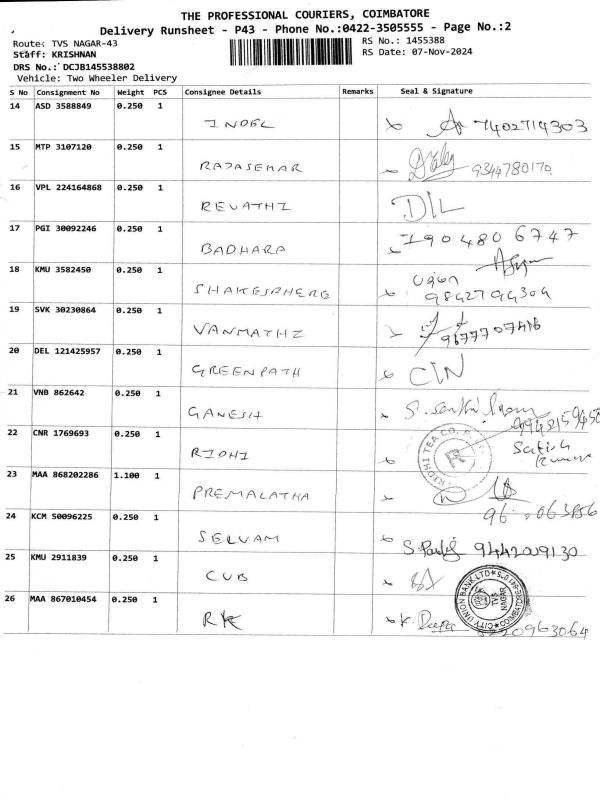 THE PROFESSIONAL COURIERS, COIMBATORE
Delivery Runsheet - P43 - Phone No.:0422-3505555 - Page No.:2
Route: TVS NAGAR-43
RS No.: 1455388
Staff: KRISHNAN
RS Date: 07-Nov-2024
DRS No.: DCJB145538802
Vehicle: Two Wheeler Delivery
S No Consignment No Weight PCS Consignee Details Remarks Seal & Signature
14 ASD 3588849 0.250 1
7402714303
15 MTP 3107120 0.250 1
RAJASEKAR 9344780170
16 VPL 224164868 0.250 1
REVATHI DIL
17 PGI 30092246 0.250 1
BADHARA
18 KMU 3582450 0.250 1
SHAKESPHERE
19 SVK 30230864 0.250 1
VANMATHI
20 DEL 121425957 0.250 1
GREENPATH
21 VNB 862642 0.250 1
GANESH
22 CNR 1769693 0.250 1
RIDHI
RIDHI TEA CO.
Satish Kumar
23 MAA 868202286 1.100 1
PREMALATHA
24 KCM 50096225 0.250 1
SELVAM 9442009130
25 KMU 2911839 0.250 1
CUB
CITY UNION BANK LTD
TVS NAGAR
26 MAA 867010454 0.250 1
RK K. Deepa